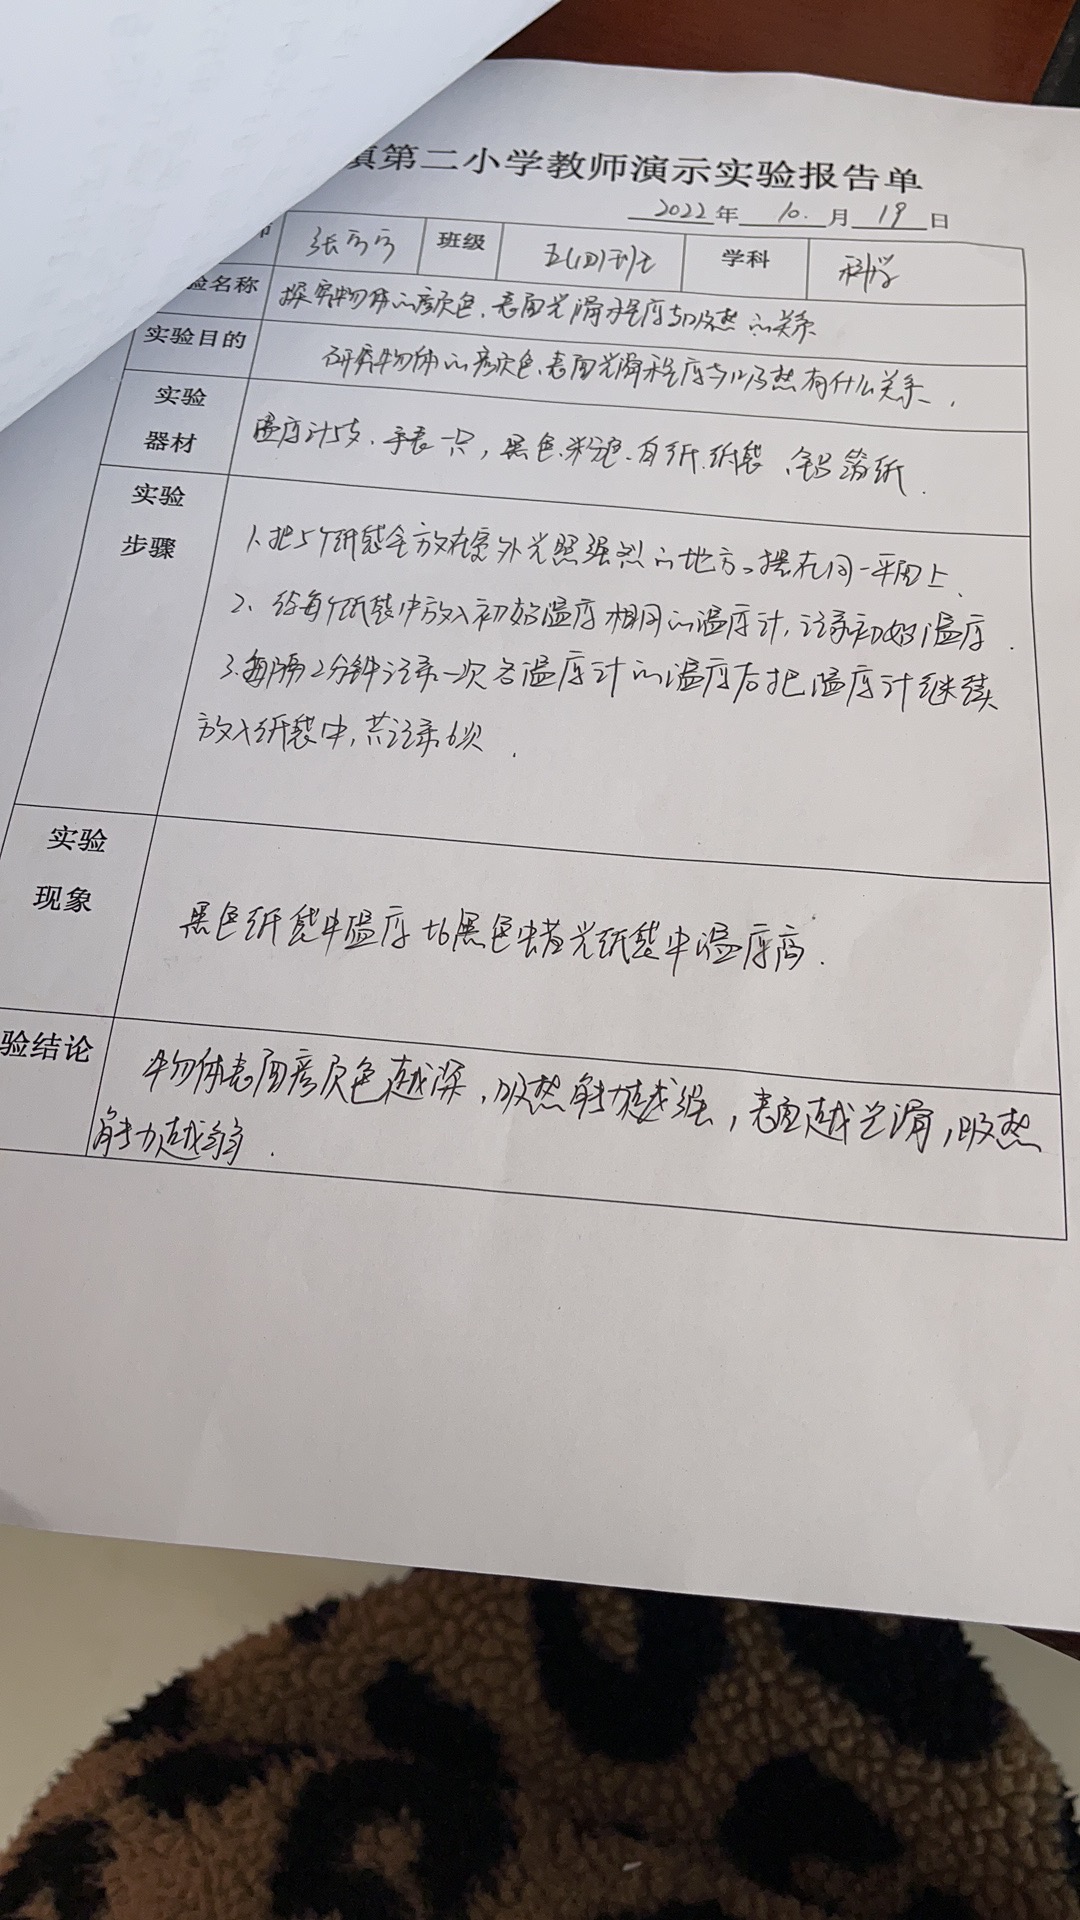 镇第二小学教师演示实验报告单
2022年 10.月 19日
师 张 班级 五(四)班 学科 科学
验名称 探究物体的颜色、表面光滑程度与吸热的关系
实验目的 研究物体的颜色、表面光滑程度与吸热有什么关系.
实验
器材 温度计5支、手表一只,黑色、粉色、白纸、纸袋、铝箔纸.
实验
步骤 1、把5个纸袋全放在室外光照强烈的地方。摆在同一平面上.
2、给每个纸袋中放入初始温度相同的温度计,记录初始温度.
3.每隔2分钟记录一次各温度计的温度后把温度计继续
放入纸袋中,共记录6次.
实验
现象 黑色纸袋中温度比黑色蜡光纸袋中温度高.
验结论 物体表面颜色越深,吸热能力越强,表面越光滑,吸热
能力越弱.